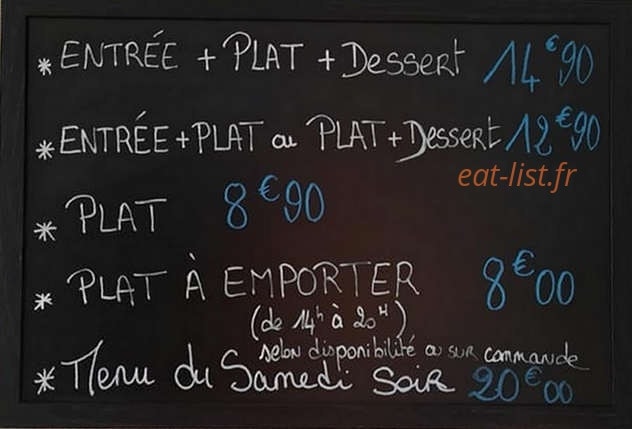 * ENTRÉE + PLAT + Dessert 14€90
* ENTRÉE + PLAT ou PLAT + Dessert 12€90
eat-list.fr
* PLAT 8€90
* PLAT À EMPORTER 8€00
(de 14h à 20H)
selon disponibilité ou sur commande
* Menu du Samedi Soir 20€00